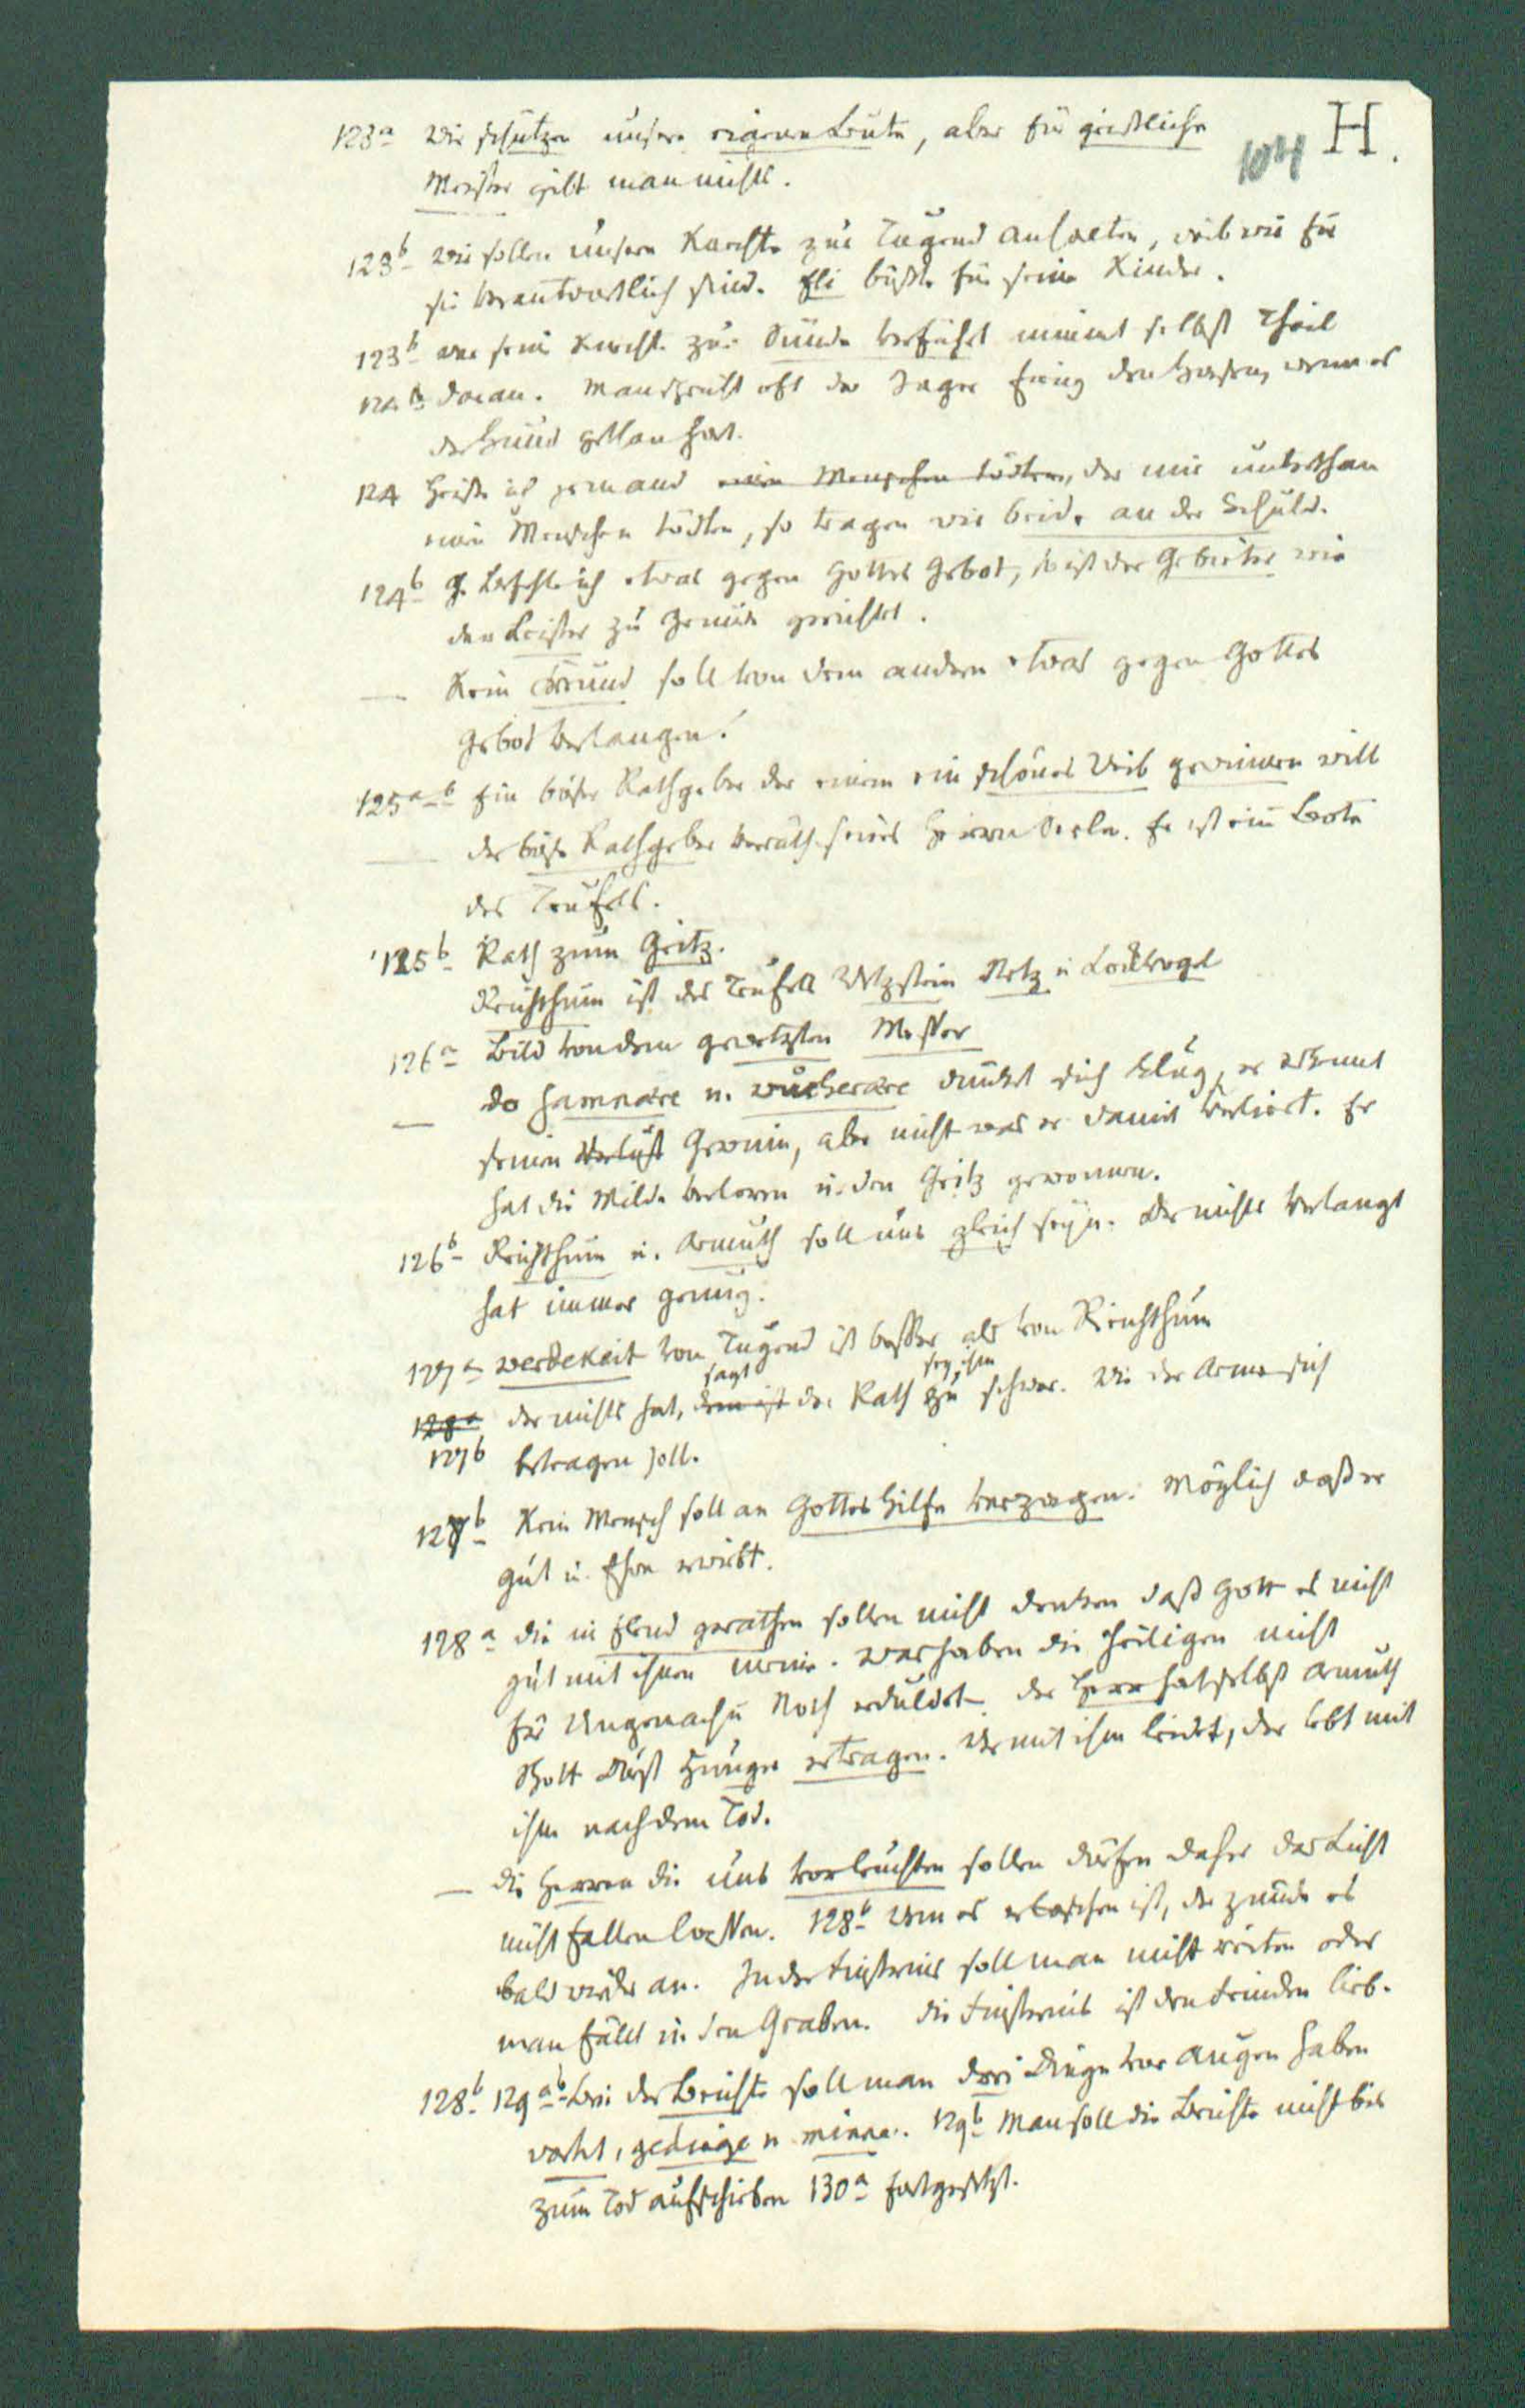 H.
104
123a wir schützen unsere eigenen Leute, aber für geistliche
Meister gibt man nichts.
123b wir sollen unsere Knechte zur Tugend anhalten, weil wir für
sie verantwortlich sind. Eli büßte für seine Kinder.
123b wer seine Knechte zur Sünde verführt nimmt selbst Theil
124a daran. Man spricht oft der Jäger fieng den Hasen, wenn es
der Hund gethan hat.
124 Heiße ich jemand einen Menschen tödten, der mir unterthan
einen Menschen tödten, so tragen wir beide an der Schuld.
124b Befehle ich etwas gegen Gottes Gebot, so ist der Gebieter wie
der Leister zu gerichtet.
— Kein Freund soll von dem andern etwas gegen Gottes
Gebot verlangen.
125a-b Ein böser Rathgeber der einem ein schönes Weib gewinnen will
— der böse Rathgeber verräth seines Herrn Seele. Er ist ein Bote
des Teufels.
125b Rath zum Geitz.
Reichthum ist des Teufels Wetzstein Netz u. Lockvogel
126a Bild von dem gewetzten Messer
— do samnære u. wucherære dünket sich klug, er erkennt
seinen Verlust Gewinn, aber nicht was er damit verliert. Er
hat die Milde verloren u. den Geitz gewonnen.
126b Reichthum u. Armuth soll uns gleich seyn. Der nichts verlangt
hat immer genug.
127a werdekeit von Tugend ist besser als von Reichthum
sagt sey ihm
128a der nichts hat, dem ist der Rath zu schwer. Wie der Arme sich
127b betragen soll.
127b Kein Mensch soll an Gottes Hilfe verzagen. Möglich daß er
Gut u. Ehre erwirbt.
128a die in Elend gerathen sollen nicht denken daß Gott es nicht
gut mit ihnen meine. Was haben die Heiligen nicht
für Ungemach u. Noth erduldet. der Herr hat selbst Armuth
Spott Durst Hunger ertragen. Wer mit ihm leidet, der lebt mit
ihm nach dem Tod.
— die Herren die uns vorleuchten sollen dürfen daher das Licht
nicht fallen lassen. 128b Wem es erloschen ist, der zünde es
bald wieder an. In der Finsternis soll man nicht reiten oder
man fällt in den Graben. die Finsternis ist den Feinden lieb.
128b 129a-b Bei der Beichte soll man drei Dinge vor Augen haben
vorht, gedinge u. minne. 129b Man soll die Beichte nicht bis
zum Tod aufschieben 130a fortgesetzt.